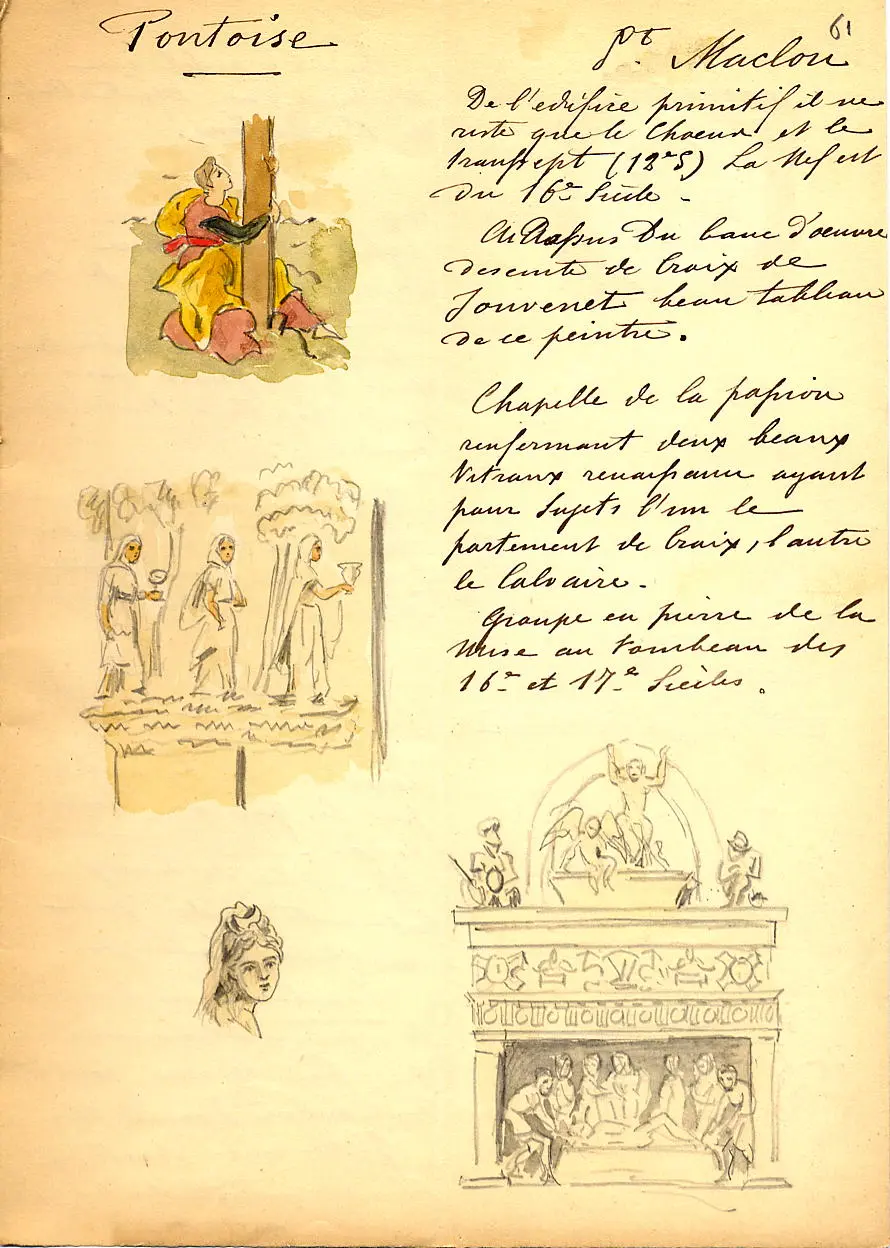 Pontoise
61
St. Maclou
De l'edifice primitif il ne
reste que le Choeur et le
transept (12e S) La Nef est
du 16e Siècle.
Au Dessus Du banc d'oeuvre
descente de Croix de
Jouvenet beau tableau
de ce peintre.
Chapelle de la passion
renfermant deux beaux
Vitraux renaissance ayant
pour Sujets l'un le
portement de Croix, l'autre
le Calvaire.
Groupe en pierre de la
Mise au Tombeau des
16e et 17e Siècles.